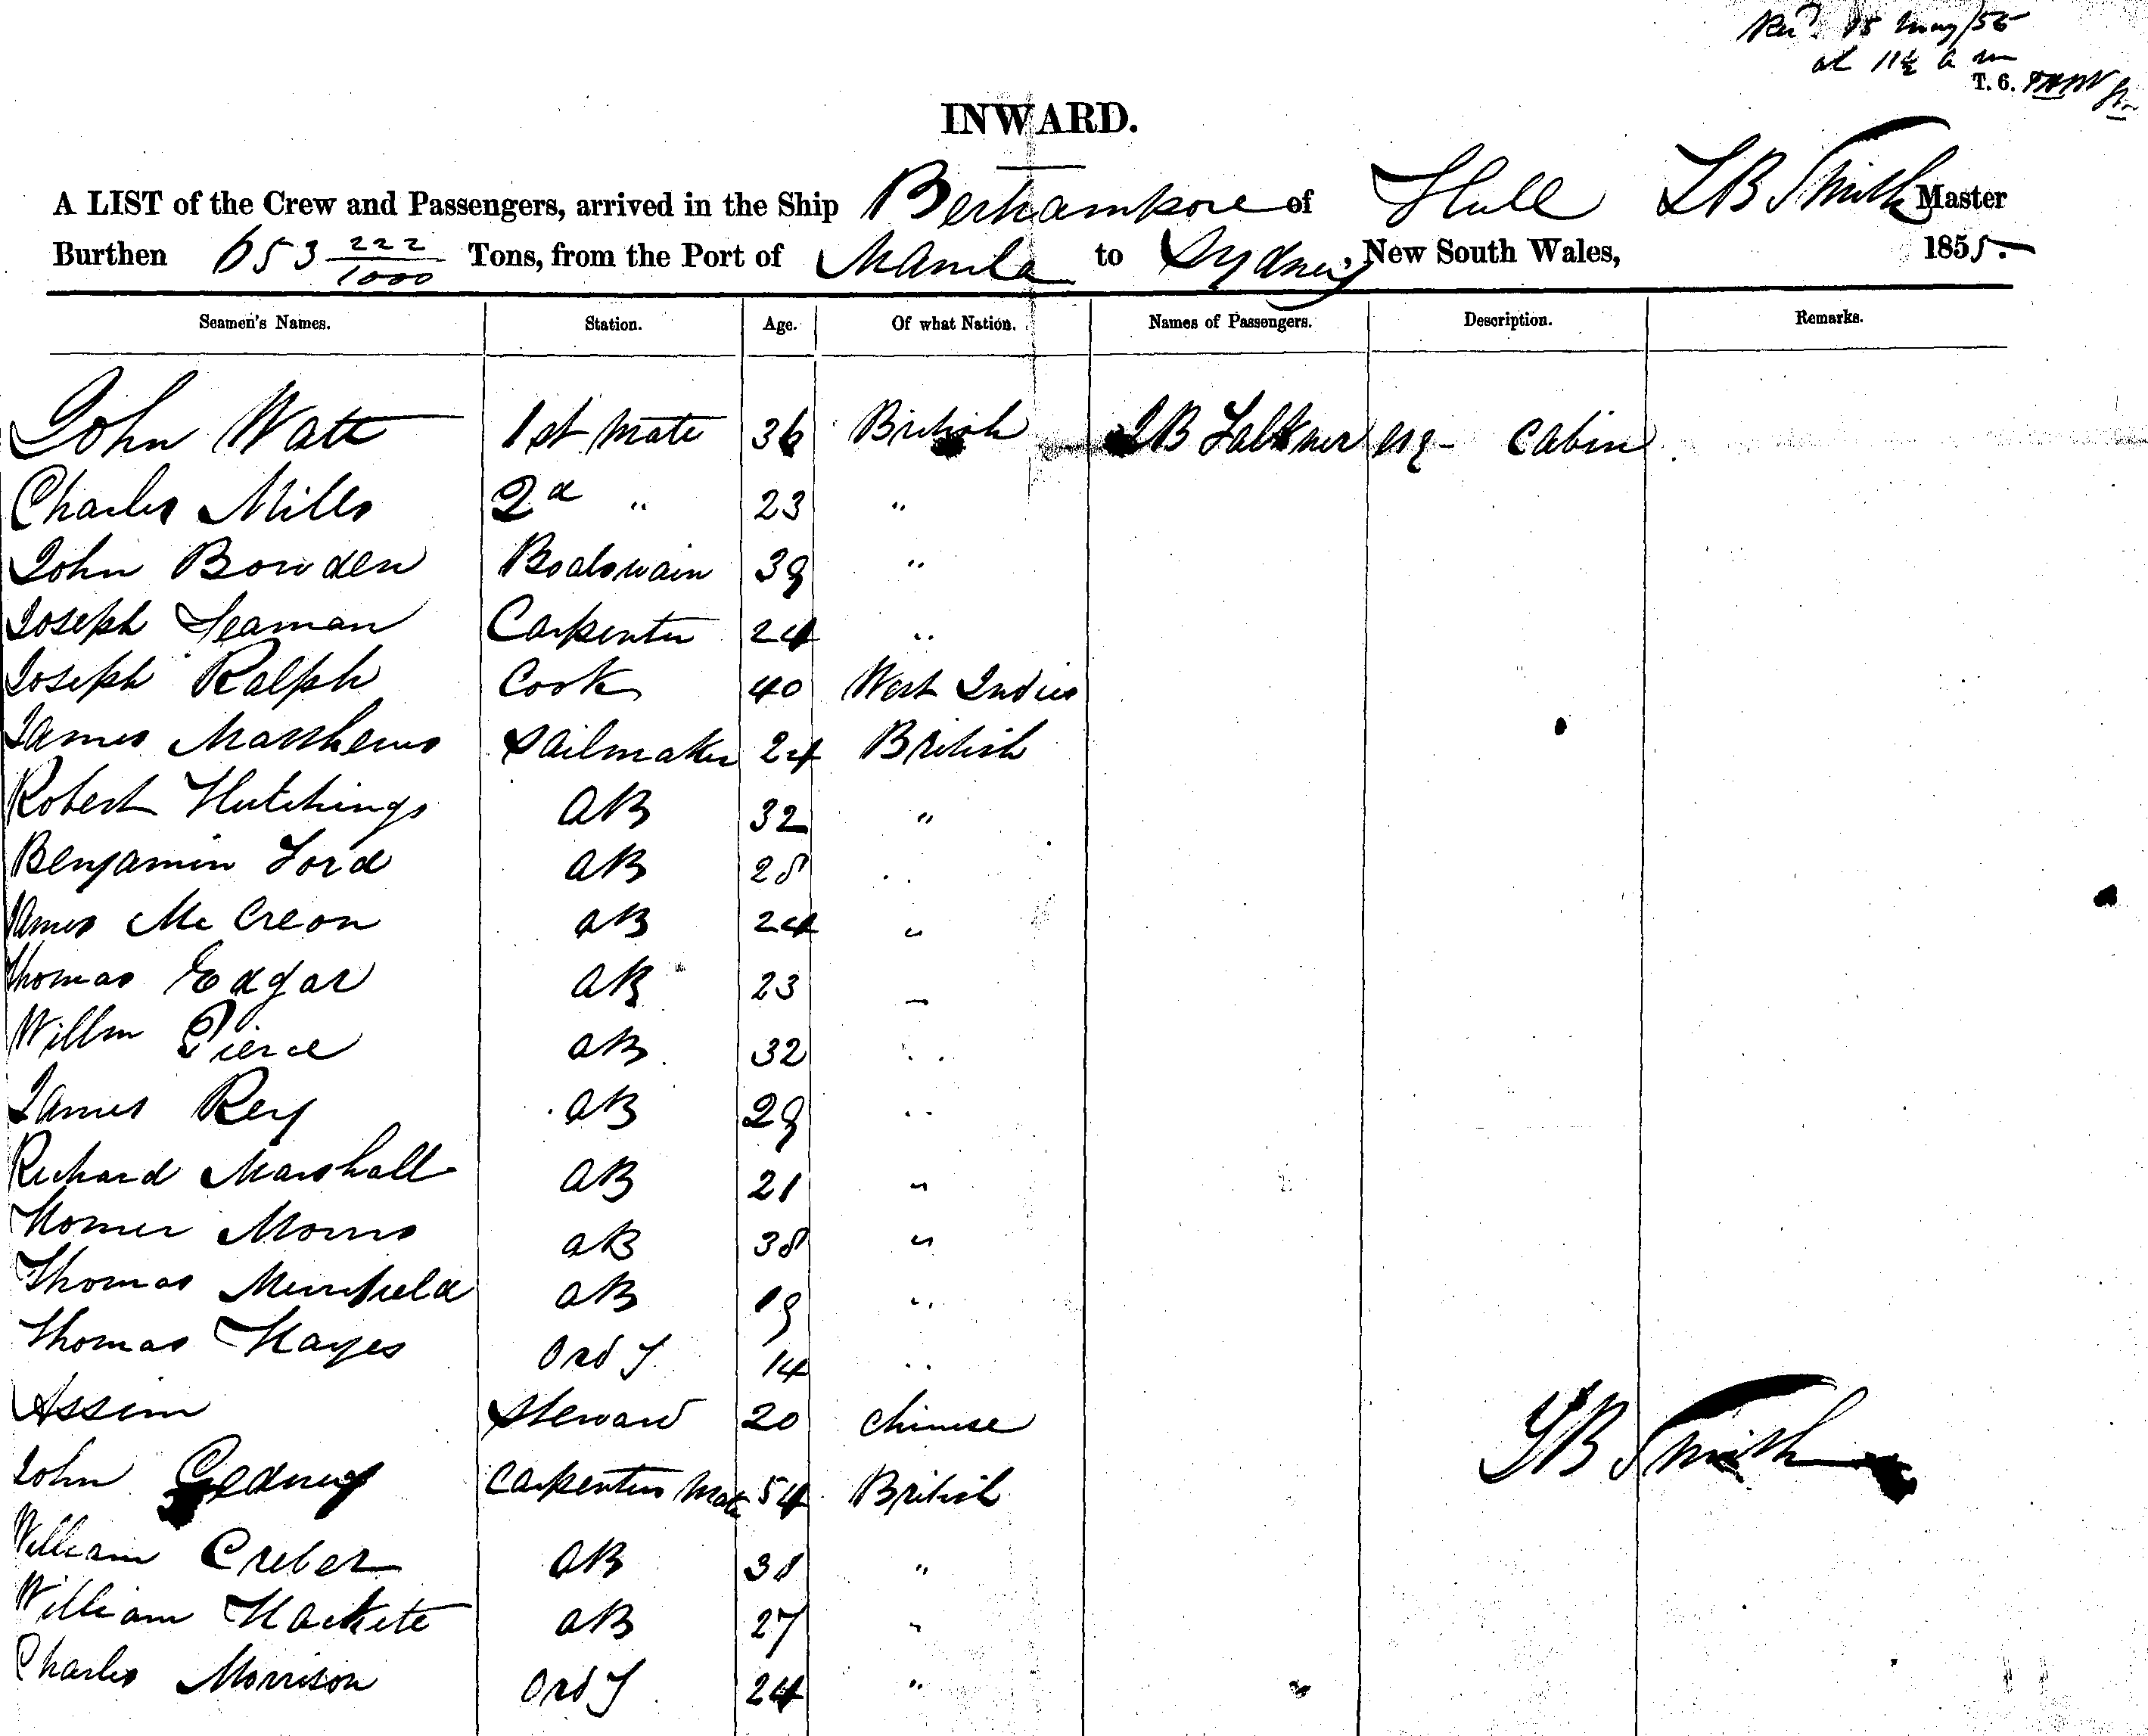 Recd. 15 May/55
at 11½ a m
T. 6.
INWARD.
A LIST of the Crew and Passengers, arrived in the Ship Berhampore of Hull LB Smith Master
Burthen 653 222/1000 Tons, from the Port of Manila to Sydney, New South Wales, 1855.
Seamen's Names. Station. Age. Of what Nation. Names of Passengers. Description. Remarks.
John Watt 1st Mate 36 British Falkner esq- Cabin
Charles Mills 2d " 23 "
John Bowden Boatswain 39 "
Joseph Seaman Carpenter 24 "
Joseph Ralph Cook 40 West Indies
James Matthews Sailmaker 24 British
Robert Hutchings AB 32 "
Benjamin Ford AB 28 "
James McCreon AB 24 "
Thomas Edgar AB 23 "
Willm Pierce AB 32 "
James Rey AB 29 "
Richard Marshall AB 21 "
Homer Morris AB 38 "
Thomas Merrifield AB 19 "
Thomas Hayes Ord S 14 "
Assim Steward 20 Chinese
LB Smith
John Gedney Carpenters Mate 54 British
William Creber AB 31 "
William Hackete AB 27 "
Charles Morrison Ord S 24 "